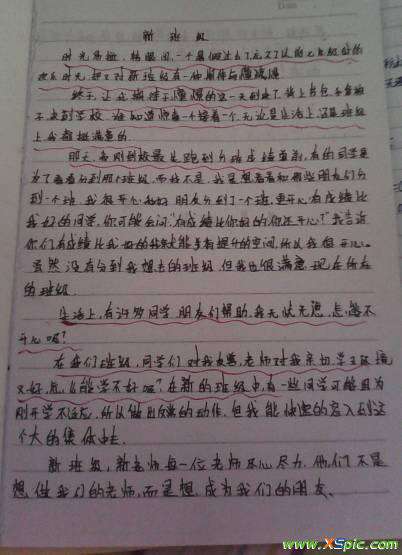 新班级
时光荏苒,转眼间,一个暑假过去了,忘不了以前七年级时的
欢乐时光,却又对新班级有一种期待与憧憬。
终于,让我期待于憧憬的这一天到来了,背上书包
来到学校,谁知道惊喜一个接着一个,无论是生活上,还是班级
上我都挺满意的。
那天,我刚到校最先跑到分班表橱窗前,有的同学是
为了看看分到哪个班级,而我不是,我是想看看和哪些朋友们分
到一个班,我很开心和好朋友分到了一个班,更开心有成绩比
我好的同学,你可能会问:"有成绩比你好的你还开心?"我告诉
你们有成绩比我好的我才能更有提升的空间,所以我很开心。
虽然没有分到我想去的班级,但我也很满意现在所在
的班级。
生活上,有许多同学、朋友们帮助,我无忧无虑,怎能不
开心呢?
在我们班级,同学们对我友善,老师对我亲切,学习环境
又好,怎么能学不好呢?在新的班级中,有一些同学可能因为
刚开学不适应,所以做出反常的动作,但我能快速的容入到这
个大的集体中去。
新班级,新老师每一位老师尽心尽力,他们不是
想做我们的老师,而是想成为我们的朋友、
www.XSpic.com